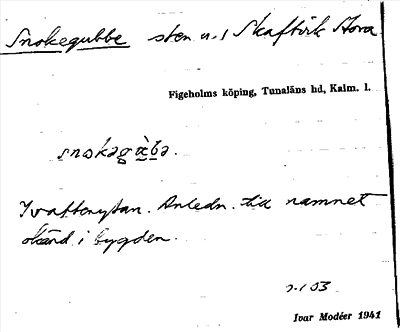 Snokegubbe sten u. / Skaftvik Stora
Figeholms köping, Tunaläns hd, Kalm. l.
I vattenytan. Anledn. till namnet
okänd i bygden.
Ivar Modéer 1941